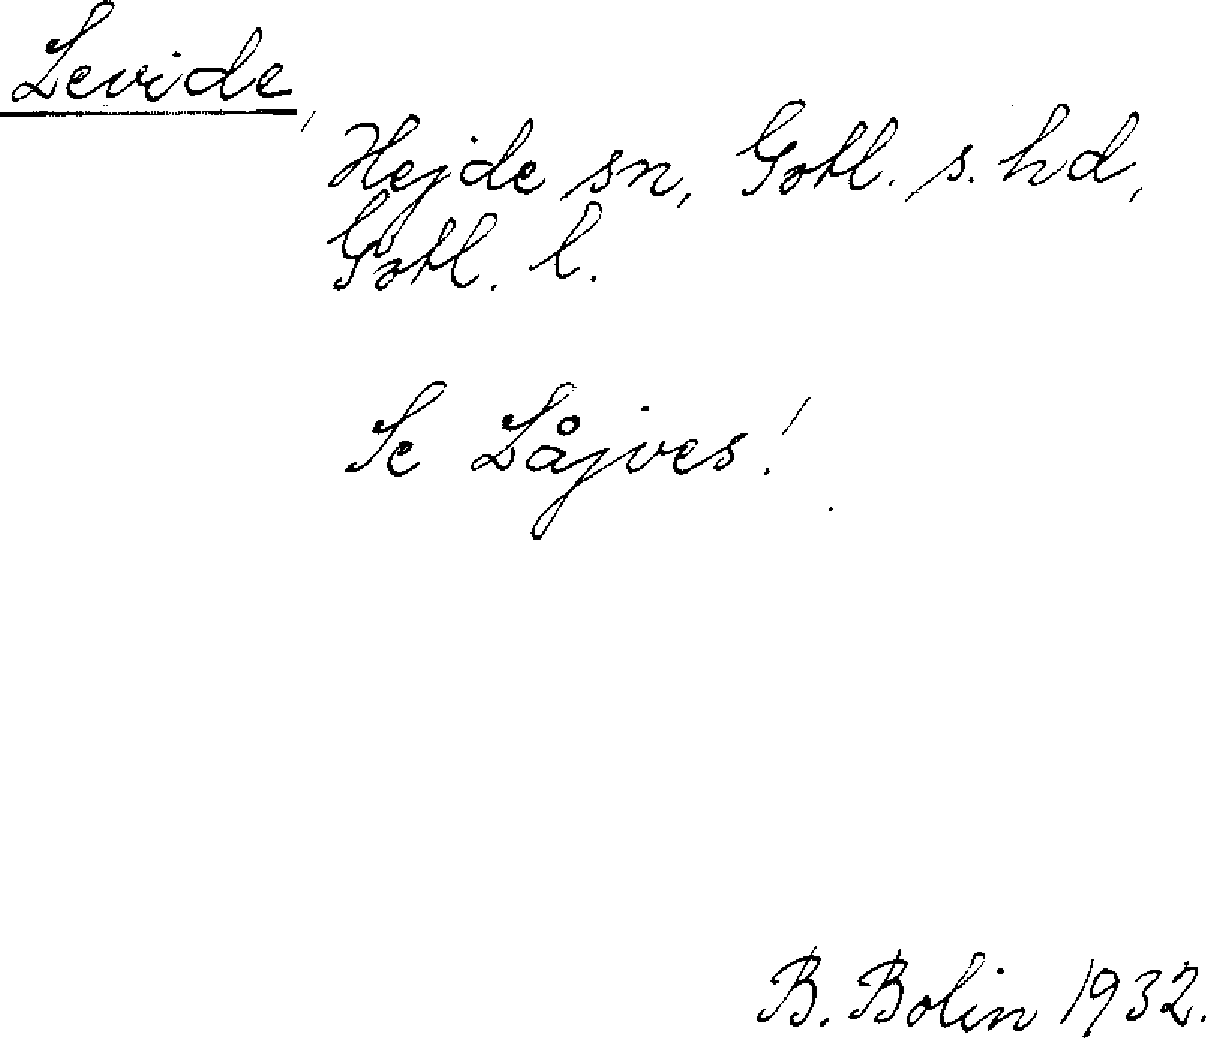 Levide,
Hejde sn, Gotl. s. hd,
Gotl. l.
Se Låjves!
B. Bolin 1932.